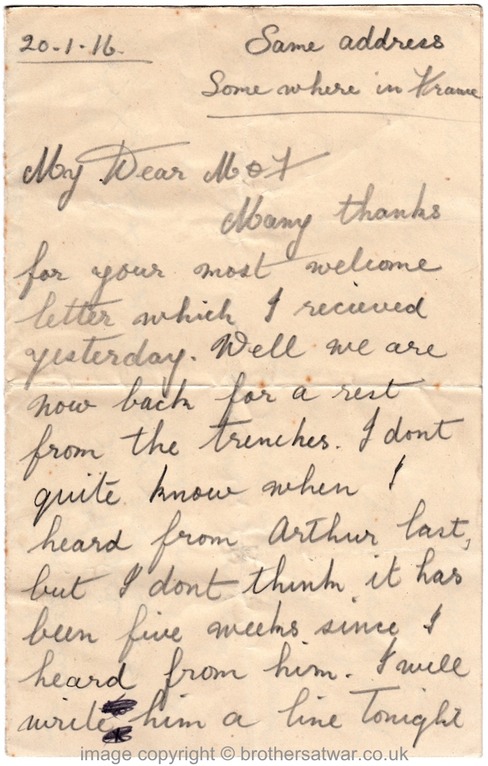 20-1-16. Same address
Some where in France
My Dear Mot
Many thanks
for your most welcome
letter which I recieved
yesterday. Well we are
now back for a rest
from the trenches. I dont
quite know when I
heard from Arthur last,
but I dont think it has
been five weeks since I
heard from him. I will
write him a line tonight
image copyright © brothersatwar.co.uk